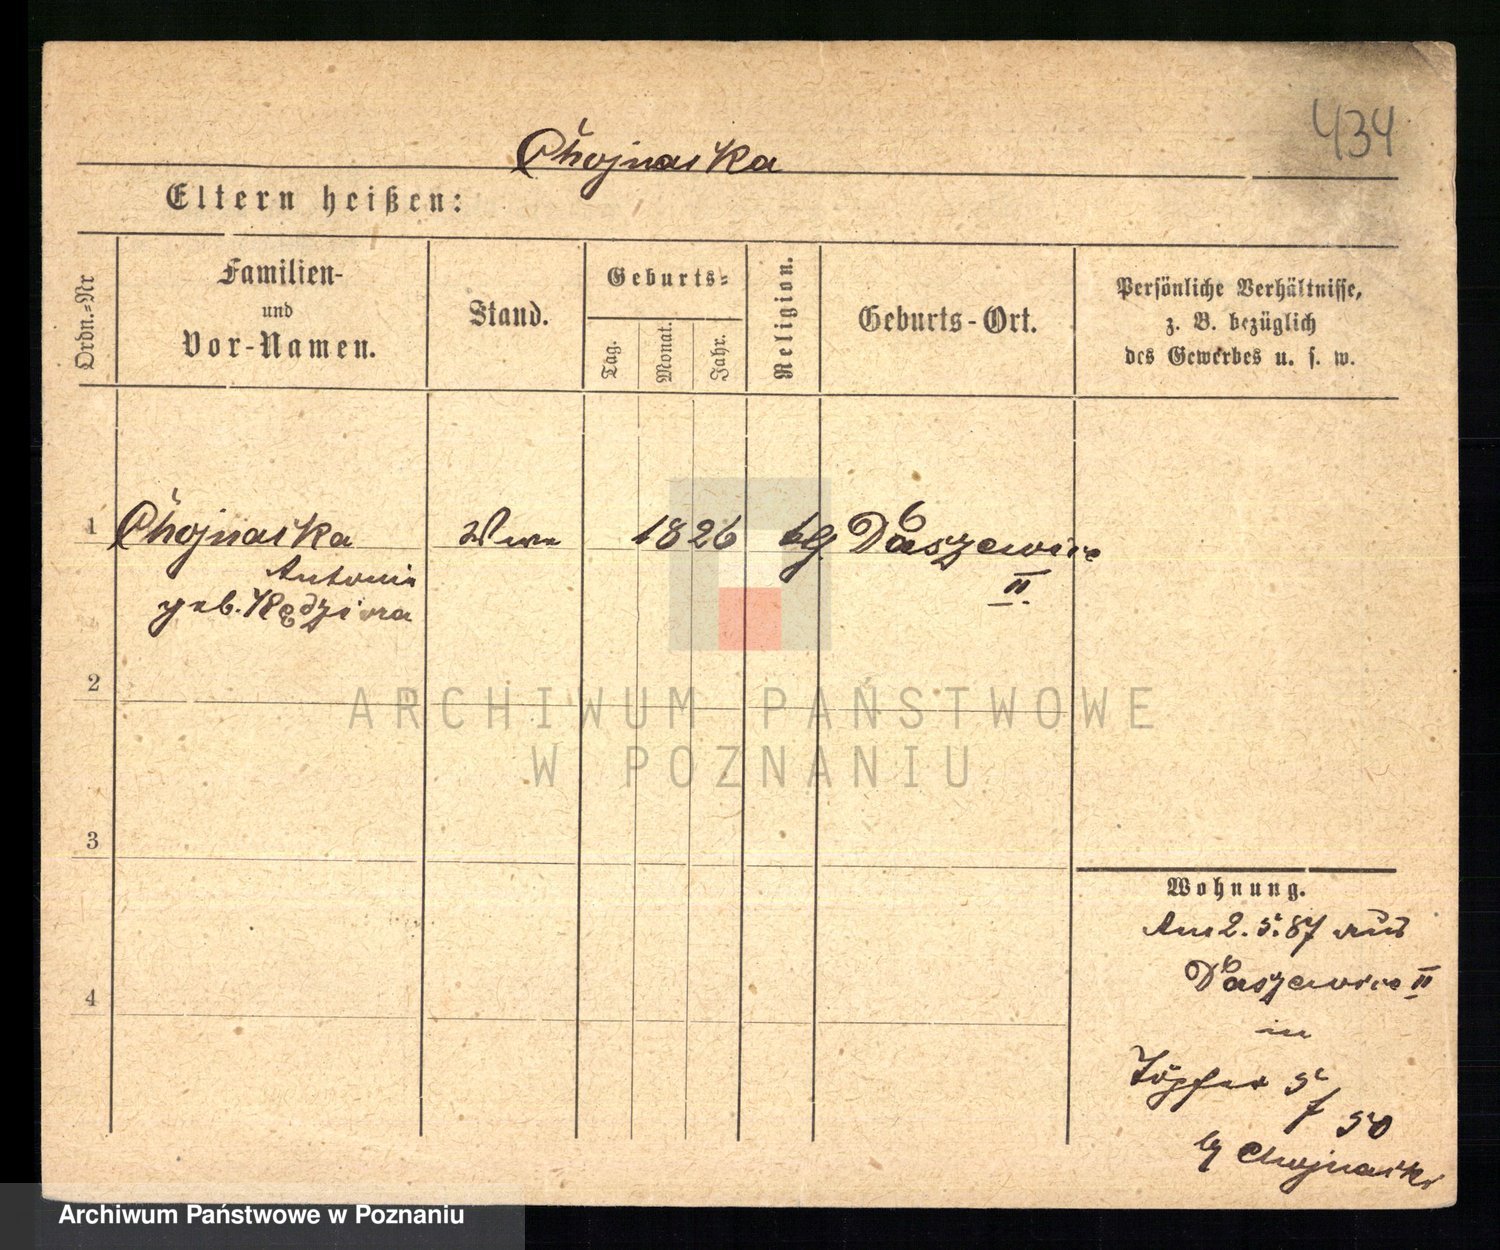 434
Chojnacka
Eltern heißen:
Ordn.-Nr
Familien-
und
Vor-Namen.
Stand.
Geburts-
Tag.
Monat.
Jahr.
Religion.
Geburts-Ort.
Persönliche Verhältnisse,
z. B. bezüglich
des Gewerbes u. s. w.
1
Chojnacka
Antonie
geb. Kędziora
Wwe
1826
kg.
Daszewice
II.
2
ARCHIWUM PAŃSTWOWE
W POZNANIU
3
Wohnung.
Am 2. 5. 87 aus
Daszewice II
in
4
Töpfer 5
/ 50
Chojnacki
Archiwum Państwowe w Poznaniu